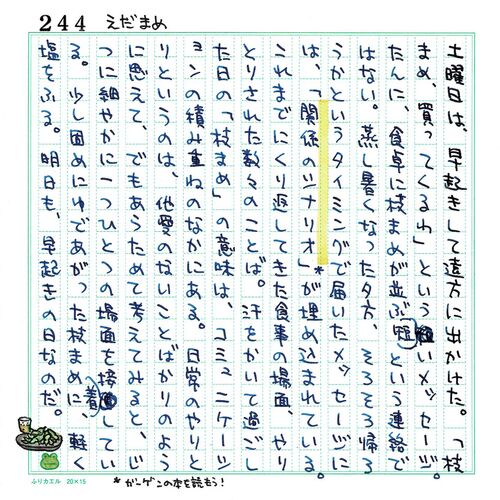 244 えだまめ
土曜日は、早起きして遠方に出かけた。「枝
まめ、買ってくるわ」という短いメッセージ。
たんに、食卓に枝まめが並ぶという連絡で
はない。蒸し暑くなった夕方、そろそろ帰ろ
うかというタイミングで届いたメッセージに
は、「関係のシナリオ」*が埋め込まれている。
これまでにくり返してきた食事の場面、やり
とりされた数々のことば。汗をかいて過ごし
た日の「枝まめ」の意味は、コミュニケーシ
ョンの積み重ねのなかにある。日常のやりと
りというのは、他愛のないことばかりのよう
に思えて、でもあらためて考えてみると、じ
つに細やかに一つひとつの場面を接着してい
る。少し固めにゆであがった枝まめに、軽く
塩をふる。明日も、早起きの日なのだ。
ふりカエル 20×15
*ガーゲンの本を読もう!